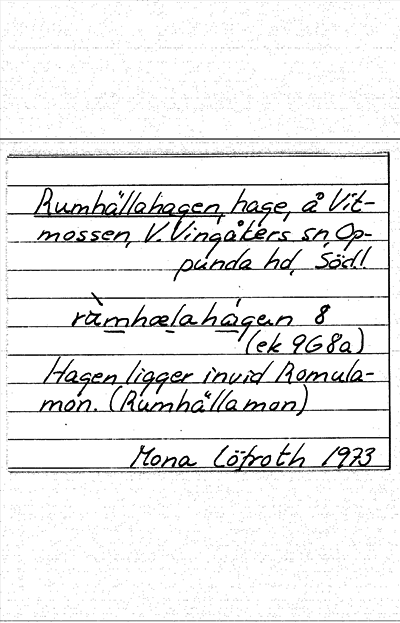 Rumhällahagen, hage, å Vit-
mossen, V. Vingåkers sn, Op-
punda hd, Södl.
ràmhælahágen 8
(ek 9G8a)
Hagen ligger invid Romula-
mon. (Rumhällamon)
Mona Löfroth 1973